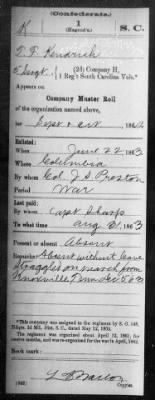 (Confederate.)
K 1 S. C.
(Hagood's)
T. F. Kendrick
5 Sergt., (2d) Company H,
1 Reg't South Carolina Vols.*
Appears on
Company Muster Roll
of the organization named above,
for Sept & Oct, 186
Enlisted:
When June 22, 1863
Where Columbia
By whom Col. J. S. Preston
Period War
Last paid:
By whom Capt Sharps
To what time Aug 31, 1863
Present or absent Absent
Remarks: Absent without leave
Straggler on march from
Knoxville Tenn Dec 5 63
*This company was assigned to the regiment by S. O. 143,
The regiment was organized about April 12, 1861, for
twelve months, and was re-organized for the war in April, 1862.
Book mark:
(642) Copyist.